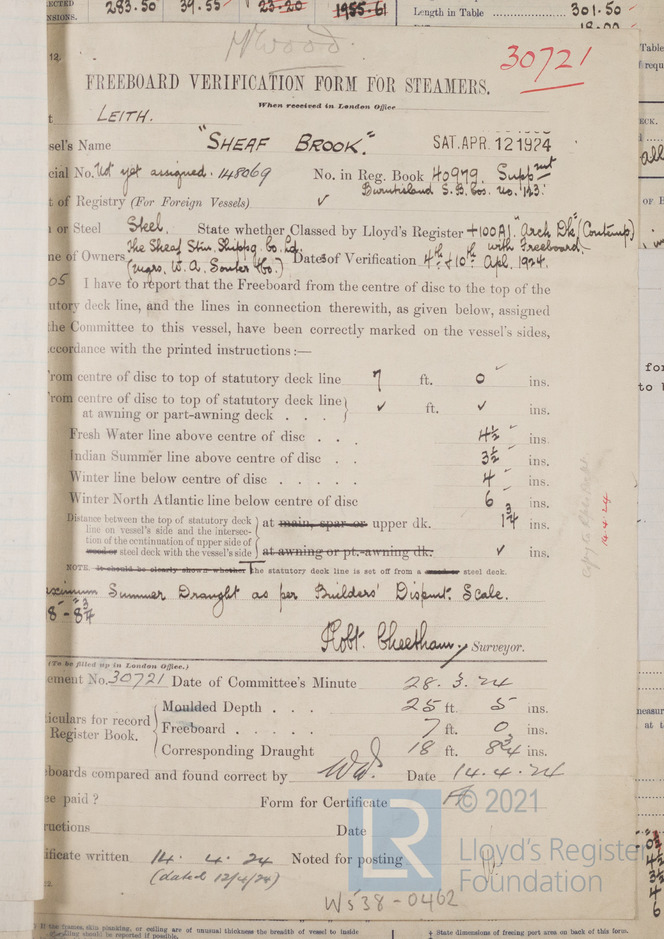 ECTED 283.50 39.55 23.20 1955.61 Length in Table 301.50
NSIONS.
12.
30721
FREEBOARD VERIFICATION FORM FOR STEAMERS.
When received in London Office
t LEITH.
sel's Name "SHEAF BROOK." SAT. APR. 12 1924
cial No. Not yet assigned. 148069 No. in Reg. Book 40979. Suppmt
Burntisland S.B. Cos. no. 123.
t of Registry (For Foreign Vessels) ✓
or Steel Steel. State whether Classed by Lloyd's Register +100A1. "Arch Dk" (Contemp)
The Sheaf Stm. Shippg. Co. Ld. with Freeboard.
ne of Owners (Mgrs. W. A. Souter & Co.) Dates of Verification 4th & 10th Apl. 1924.
05 I have to report that the Freeboard from the centre of disc to the top of the
utory deck line, and the lines in connection therewith, as given below, assigned
the Committee to this vessel, have been correctly marked on the vessel's sides,
ccordance with the printed instructions :—
From centre of disc to top of statutory deck line 7 ft. 0 ins.
From centre of disc to top of statutory deck line
at awning or part-awning deck . . . ✓ ft. ✓ ins.
Fresh Water line above centre of disc . . . 4½ ins.
Indian Summer line above centre of disc . . 3½ ins.
Winter line below centre of disc . . . . . 4 ins.
Winter North Atlantic line below centre of disc 6 ins.
Distance between the top of statutory deck
line on vessel's side and the intersec-
tion of the continuation of upper side of
wood or steel deck with the vessel's side
at main, spar or upper dk. 1¾ ins.
at awning or pt.-awning dk. ✓ ins.
NOTE. It should be clearly shown whether The statutory deck line is set off from a wood or steel deck.
aximum Summer Draught as per Builders' Dispmt. Scale.
8'-8¾
Robt. Cheetham, Surveyor.
(To be filled up in London Office.)
ement No. 30721 Date of Committee's Minute 28. 3. 24
iculars for record
Register Book.
Moulded Depth . . . 25 ft. 5 ins.
Freeboard . . . . . 7 ft. 0 ins.
Corresponding Draught 18 ft. 8¾ ins.
boards compared and found correct by Date 14. 4. 24
ee paid ? Form for Certificate
ructions Date
ificate written 14. 4. 24 Noted for posting
(dated 12/4/24)
14.4.24
© 2021
LR
Lloyd's Register
Foundation
WS38-0462
If the frames, skin planking, or ceiling are of unusual thickness the breadth of vessel to inside
ceiling should be reported if possible.
+ State dimensions of freeing port area on back of this form.